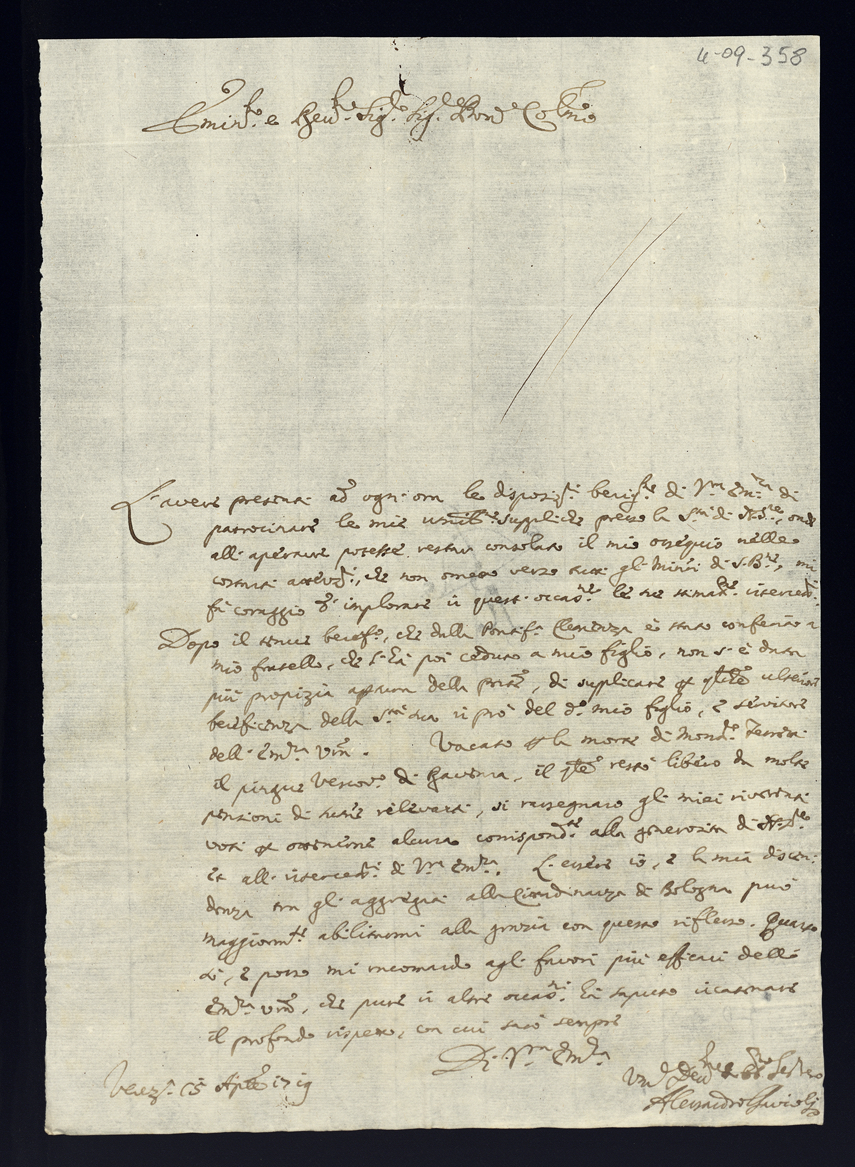 4-09-358
Emin.mo e Rev.mo Sig.re Sig.r Pron. Colmo
L'avere presenti ad ogni ora le disposiz.i di V.ra Em.za di
patrocinare le mie umil.me suppliche presso la S.tà di N. S.re, onde
all'aperture potesse restar consolato il mio ossequio nelle
che non ometto verso tutti gli Min.ri di S. B.ne, mi
fà coraggio implorare in questa occas.ne le sue stimat.me interced.
Dopo il tenue benef.o, che dalla Pontif.a Clemenza è stato conferito a
mio fratello, che l'hà poi ceduto a mio figlio, non s'è data
più propizia apertura della pres.te, di supplicare ulteriore
beneficenza della S.tà sua in prò del d.o mio figlio, e servitore
dell'Em.za V.ra. Vacato la morte di Mons.r
il pingue Vescov.o di il q.le restò libero da molte
pensioni di rilevanti, si rassegnano gli miei riverenti
voti ottenerne alcuna corrispond.te alla generosità di N. S.re
et all'interced. di V.ra Em.za. L'essere io, e la mia discen-
denza tra gli aggregati alla Cittadinanza di Bologna può
maggiorm.te abilitarmi alla grazia con questo riflesso. Quanto
sò, e posso mi racomando agli favori più efficaci dell'
Em.za V.ra, che pure in altre occas.ni hà saputo incatenare
il profondo rispetto, con cui sarò sempre
Di V.ra Em.za
Venez.a 15 Ap.le 1719
Um.o Dev.mo et Ob.mo Ser.re
Alessandro